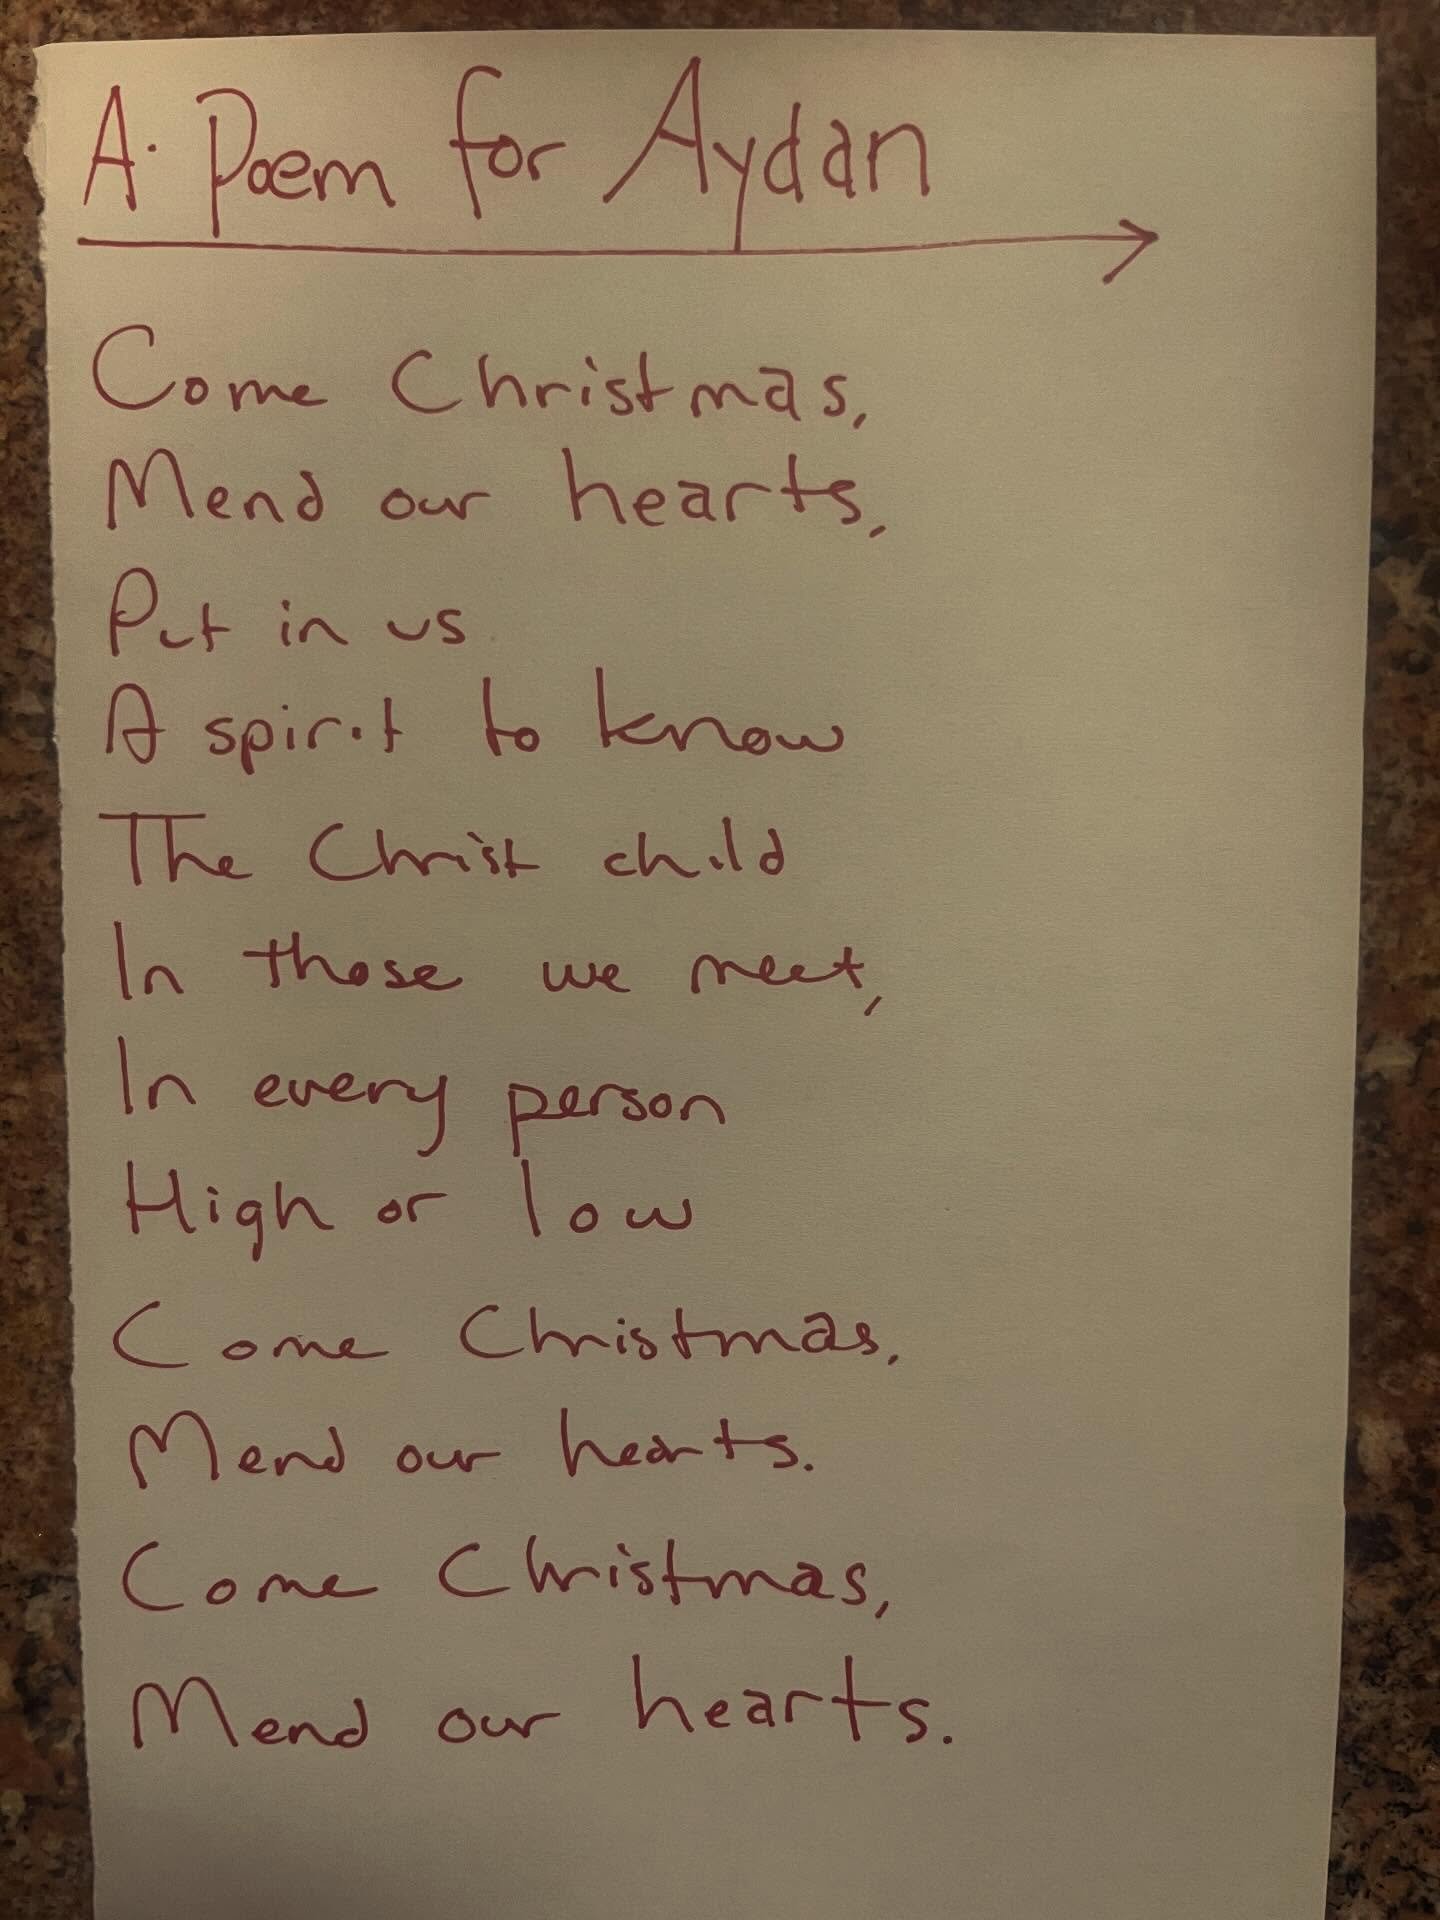 A Poem for Aydan
Come Christmas,
Mend our hearts,
Put in us
A spirit to know
The Christ child
In those we meet,
In every person
High or low
Come Christmas,
Mend our hearts.
Come Christmas,
Mend our hearts.